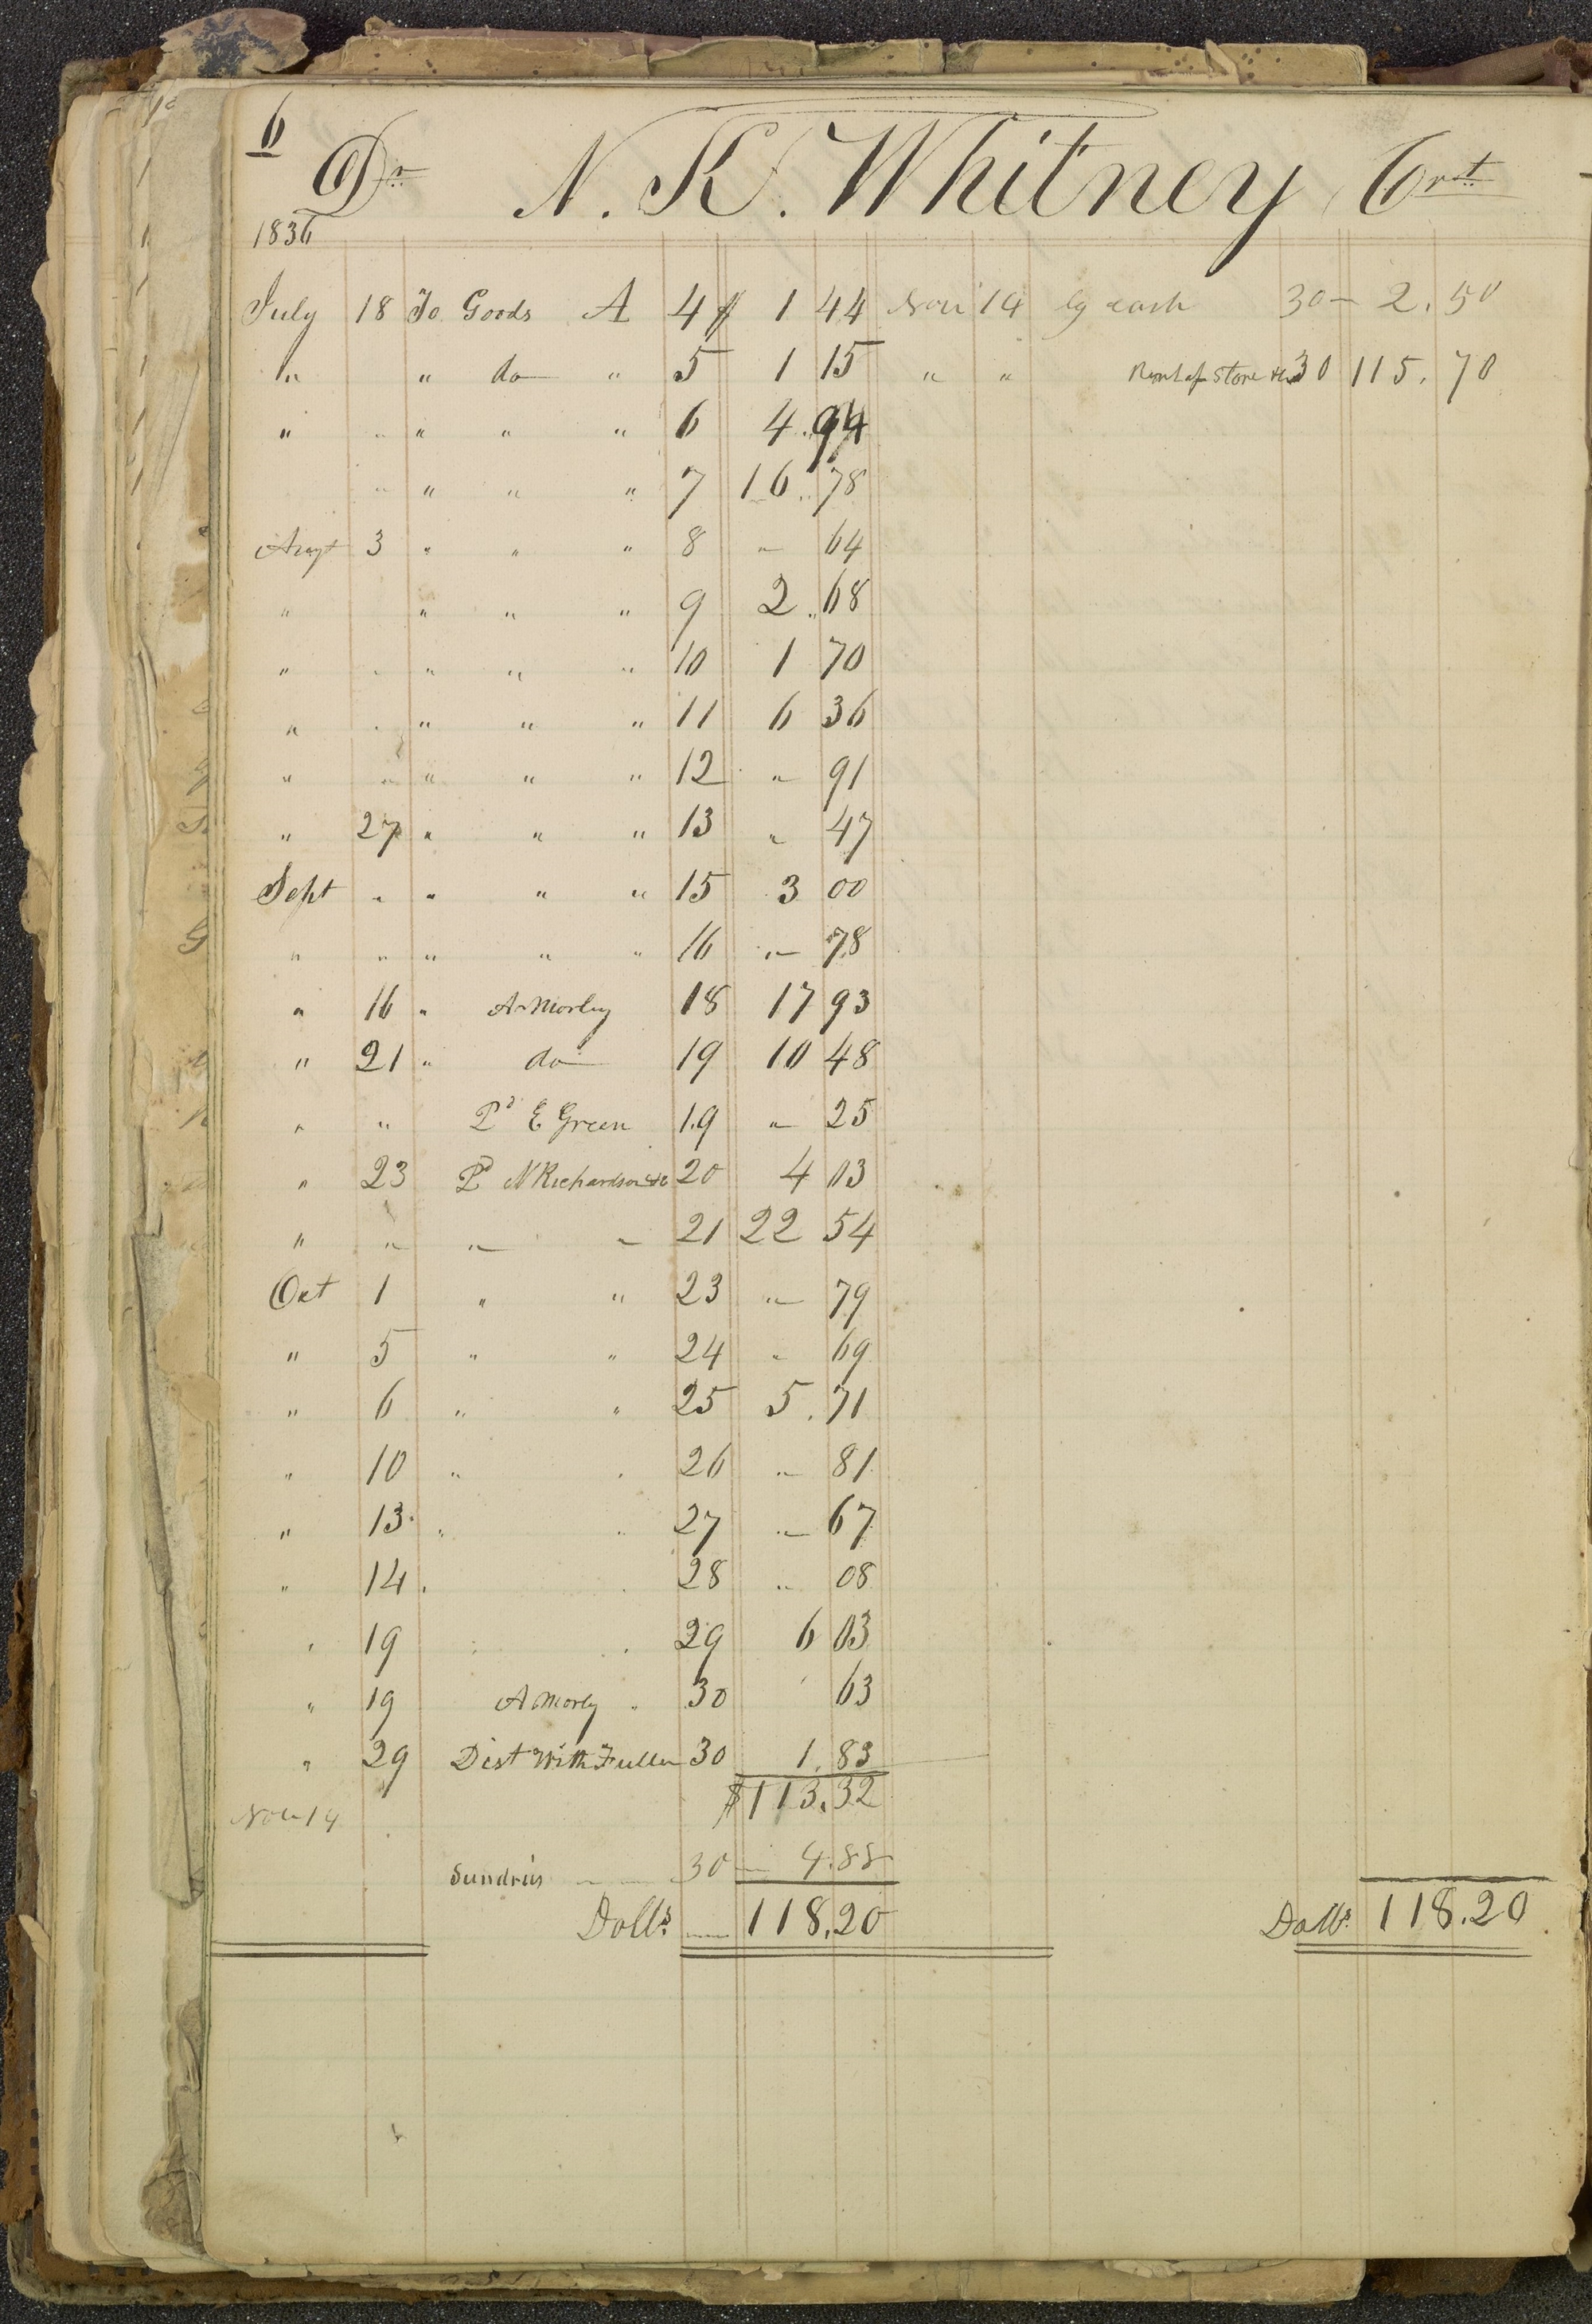 6
Dr N. K. Whitney Crt
1836
July 18 To Goods A 4 $ 1 44 Nov 14 by cash 30 — 2.50
" " do " 5 1 15 " " Rent of Store &c 30 115.70
" " " " " 6 4.94
" " " " 7 16.78
Augt 3 " " " 8 " 64
" " " " 9 2.68
" " " " " 10 1 70
" " " " " 11 6 36
" " " " " 12 " 91
" 27 " " " 13 " 47
Sept " " " " 15 3 00
" " " " " 16 " 78
" 16 " A Morley 18 17 93
" 21 " do 19 10 48
" " Pd E Green 19 " 25
" 23 Pd N Richardson &c 20 4 03
" " " " 21 22 54
Oct 1 " " 23 " 79
" 5 " " 24 " 69
" 6 " " 25 5.71
" 10 " " 26 " 81
" 13 " " 27 " 67
" 14 " " 28 " 08
" 19 " " 29 6 03
" 19 A Morley " 30 " 63
" 29 Dist With Fuller 30 1.83
$113.32
Nov 14
Sundries 30 — 4.88
Dolls. 118.20 Dolls. 118.20